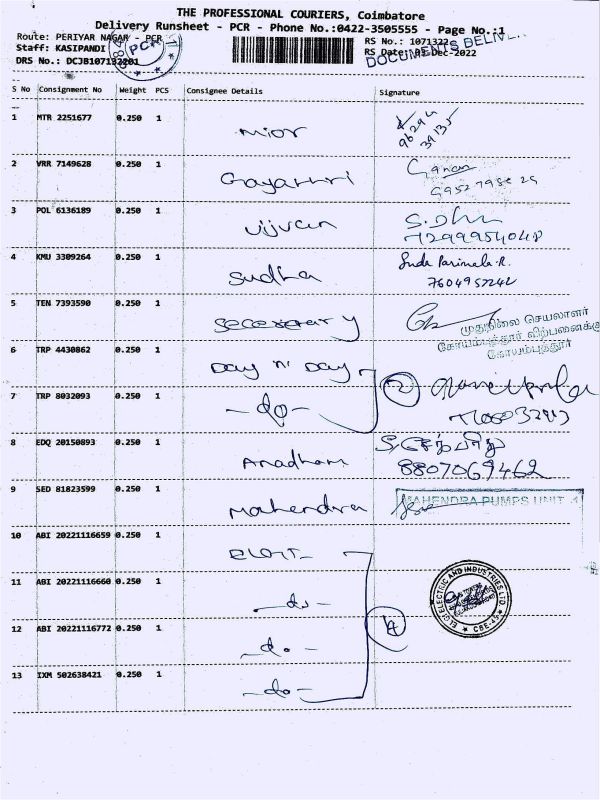 THE PROFESSIONAL COURIERS, Coimbatore
Delivery Runsheet - PCR - Phone No.:0422-3505555 - Page No.:1
Route: PERIYAR NAGAR - PCR
RS No.: 1071322
Staff: KASIPANDI
RS Date: -Dec-2022
DRS No.: DCJB107132201
DOCUMENTS
PCR
S No Consignment No Weight PCS Consignee Details Signature
1 MTR 2251677 0.250 1 Mior
96294
39135
2 VRR 7149628 0.250 1 Gayathri
3 POL 6136189 0.250 1 Vijven S.
7299954048
4 KMU 3309264 0.250 1 Sudha Suda Parimela.R.
7604957242
5 TEN 7393590 0.250 1 Secretary
முதுநிலை செயலாளர்
கோயம்புத்தூர் விற்பனைக்கு
கோயம்புத்தூர்
6 TRP 4430862 0.250 1 Day n' Day 2
7 TRP 8032093 0.250 1 -do-
8 EDQ 20150893 0.250 1 Anadham
8807069462
9 SED 81823599 0.250 1 Mahendra MAHENDRA PUMPS UNIT
10 ABI 20221116659 0.250 1 ELGI-
11 ABI 20221116660 0.250 1 -do-
12 ABI 20221116772 0.250 1 -do- 4
13 IXM 502638421 0.250 1 -do-
ELGI ELECTRIC AND INDUSTRIES LTD.
CBE-45